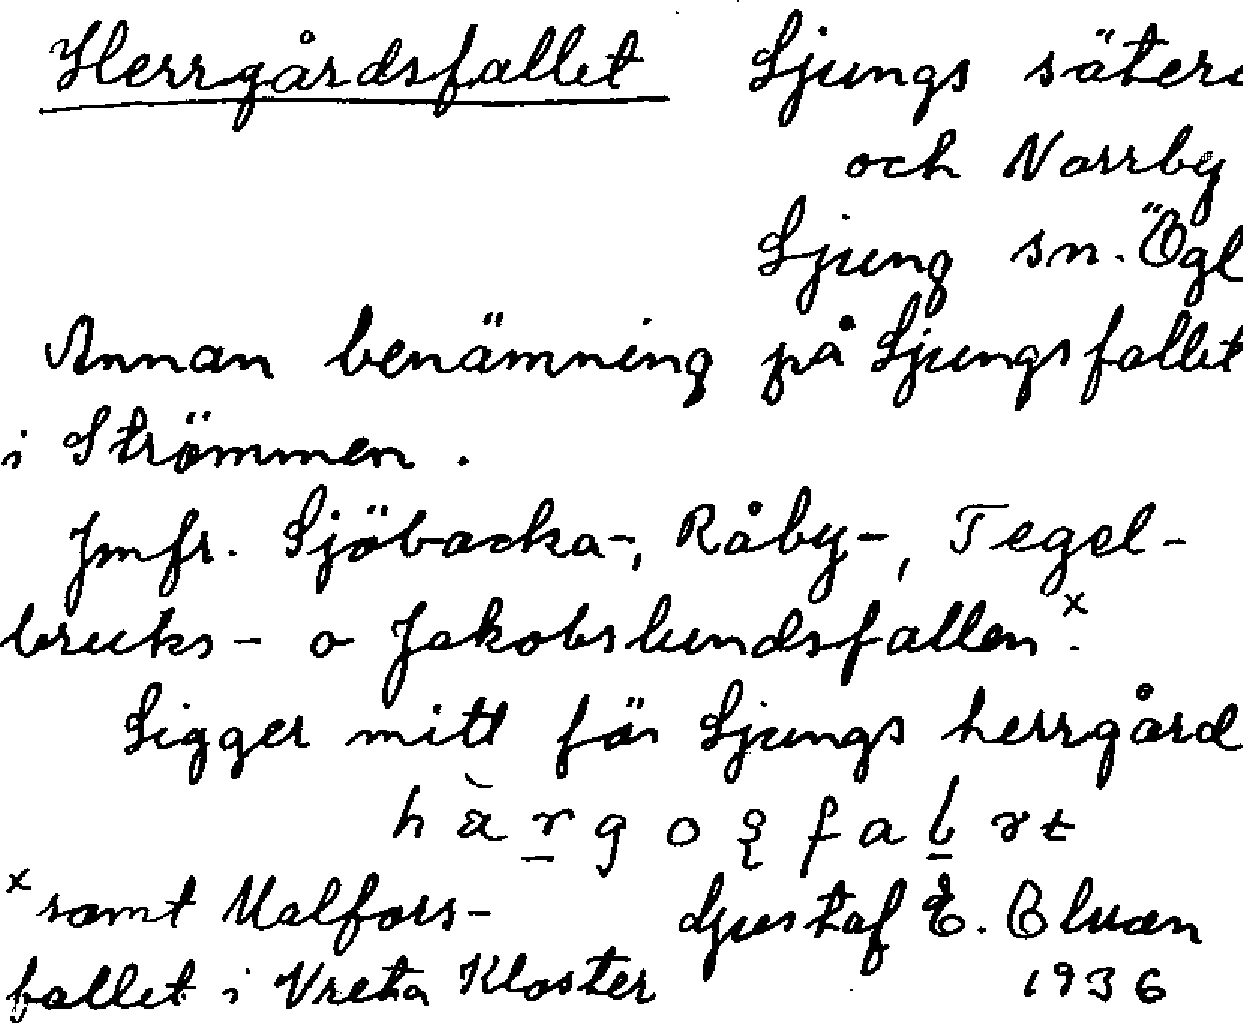 Herrgårdsfallet Ljungs säteri
och Norrby
Ljung sn. Ögl
Annan benämning på Ljungsfallet
i Strömmen.
Jmfr. Sjöbacka-, Råby-, Tegel-
bruks- o Jakobslundsfallen x.
Ligger mitt för Ljungs herrgård
x samt Malfors-
fallet i Vreta Kloster
Gustaf E.
1936